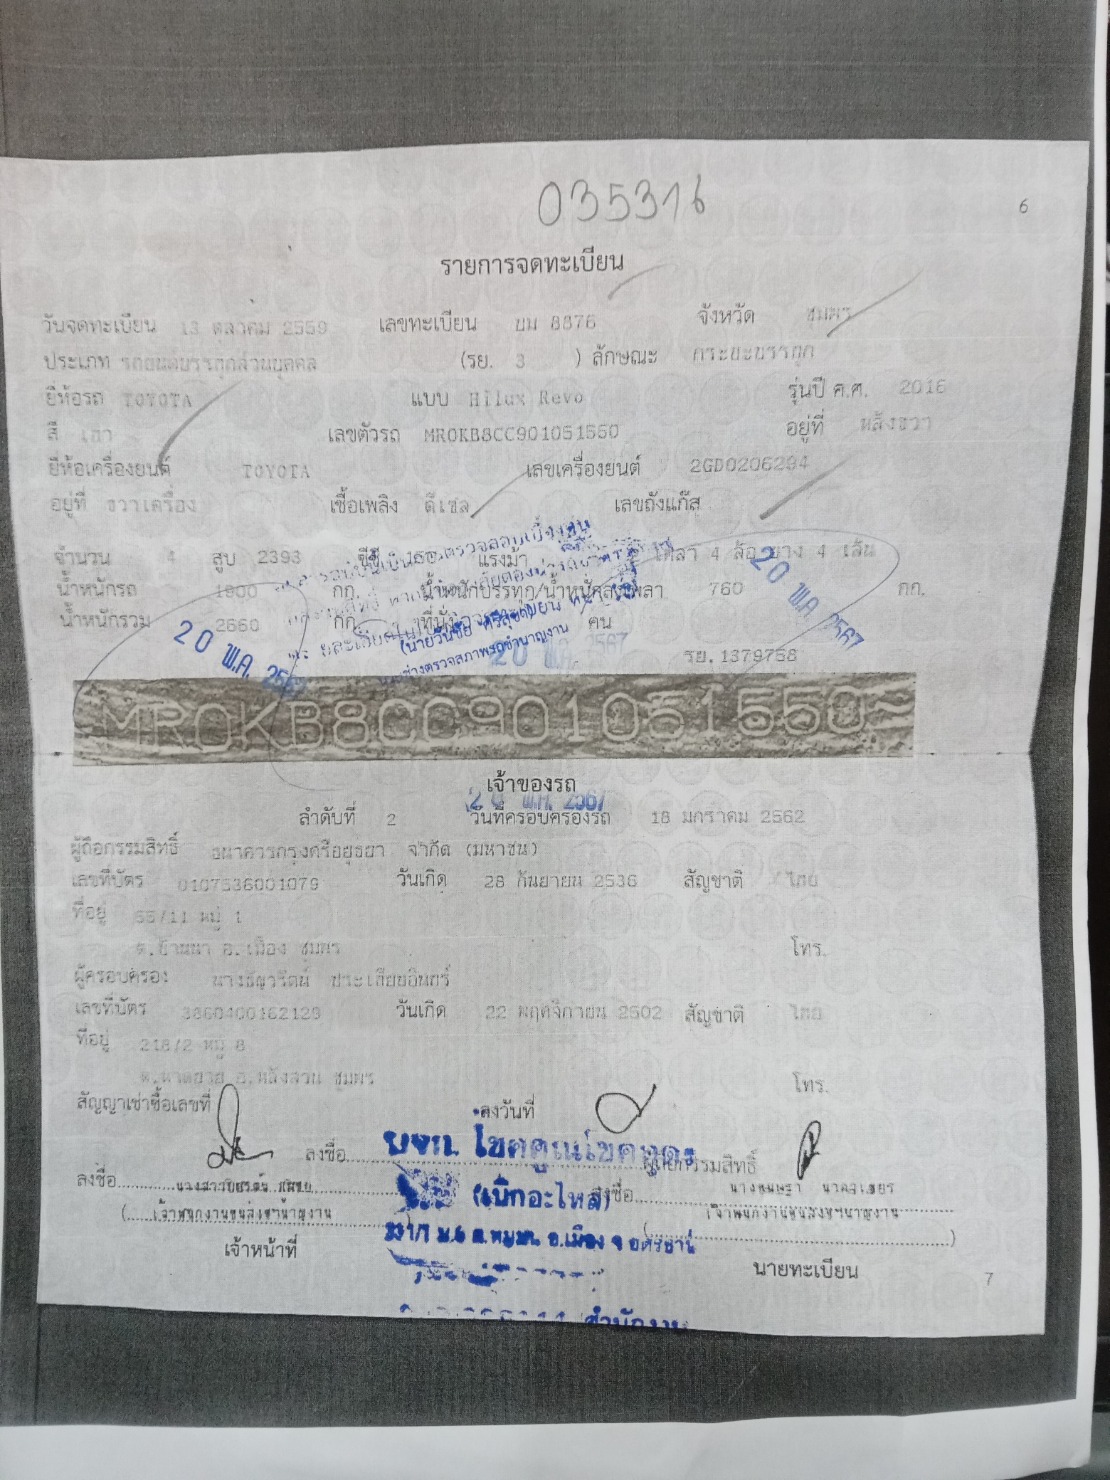 035316
6
รายการจดทะเบียน
วันจดทะเบียน 13 ตุลาคม 2559 เลขทะเบียน 8876 จังหวัด ชุมพร
ประเภท รถยนต์บรรทุกส่วนบุคคล (รย. 3 ) ลักษณะ กระบะบรรทุก
ยี่ห้อรถ TOYOTA แบบ Hilux Revo รุ่นปี ค.ศ. 2016
สี เทา เลขตัวรถ MR0KB8CC901051550 อยู่ที่ หลังขวา
ยี่ห้อเครื่องยนต์ TOYOTA เลขเครื่องยนต์ 2GD0206294
อยู่ที่ ขวาเครื่อง เชื้อเพลิง ดีเซล เลขถังแก๊ส
จำนวน 4 สูบ 2393 ซีซี แรงม้า เพลา 4 ล้อ ยาง 4 เส้น
น้ำหนักรถ 1900 กก. น้ำหนักบรรทุก/น้ำหนักลงเพลา 760 กก.
น้ำหนักรวม 2660 กก. ที่นั่ง คน
20 พ.ค. 2567
20 พ.ค. 2567
20 พ.ค.
รย. 1379758
MR0KB8CC901051550
เจ้าของรถ
20 พ.ค. 2567
ลำดับที่ 2 วันที่ครอบครองรถ 18 มกราคม 2562
ผู้ถือกรรมสิทธิ์ ธนาคารกรุงศรีอยุธยา จำกัด (มหาชน)
เลขที่บัตร 0107536001079 วันเกิด 28 กันยายน 2536 สัญชาติ ไทย
ที่อยู่ 55/11 หมู่ 1
ต.บ้านนา อ.เมือง ชุมพร โทร.
ผู้ครอบครอง
เลขที่บัตร 3860400162129 วันเกิด 22 พฤศจิกายน 2502 สัญชาติ ไทย
ที่อยู่ 218/2 หมู่ 8
ต.หาดยาย อ.หลังสวน ชุมพร โทร.
สัญญาเช่าซื้อเลขที่ ลงวันที่
ลงชื่อ ผู้ถือกรรมสิทธิ์
บจก. โชคคูณโชคอุดร
(เบิกอะไหล่)
ลงชื่อ ลงชื่อ
เจ้าพนักงานขนส่งชำนาญงาน เจ้าพนักงานขนส่งชำนาญงาน
อ.เมือง จ.อุดรธานี
เจ้าหน้าที่ นายทะเบียน
7
สำนักงาน